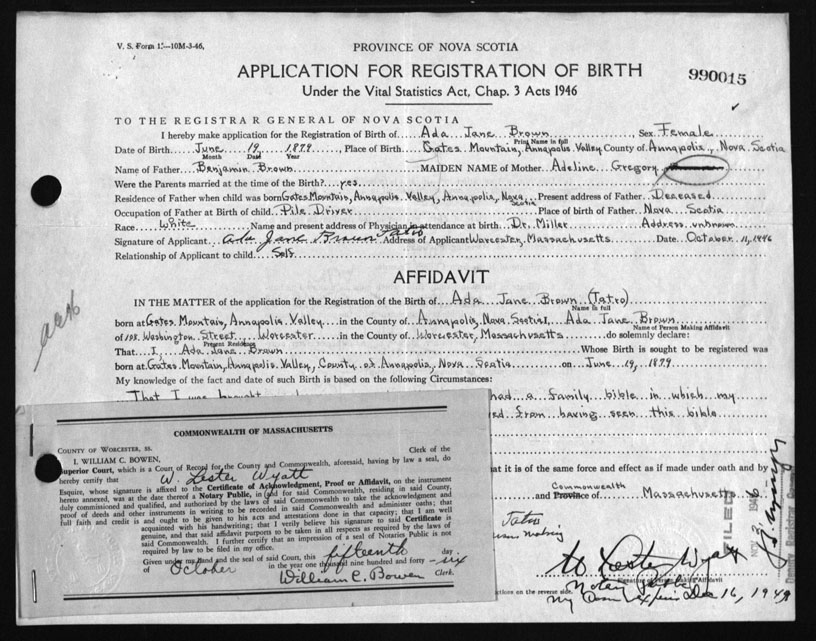 V. S. Form 1.—10M-3-46.
PROVINCE OF NOVA SCOTIA
APPLICATION FOR REGISTRATION OF BIRTH
990015
Under the Vital Statistics Act, Chap. 3 Acts 1946
TO THE REGISTRAR GENERAL OF NOVA SCOTIA
I hereby make application for the Registration of Birth of Ada Jane Brown Sex Female
Print Name in full
Date of Birth June 19, 1879 Place of Birth Gates Mountain, Annapolis Valley County of Annapolis, Nova Scotia
Month Date Year
Name of Father Benjamin Brown MAIDEN NAME of Mother Adeline Gregory
Were the Parents married at the time of the Birth? yes
Residence of Father when child was born Gates Mountain, Annapolis Valley, Annapolis, Nova Scotia Present address of Father Deceased
Occupation of Father at Birth of child Pile Driver Place of birth of Father Nova Scotia
Race White Name and present address of Physician in attendance at birth Dr. Miller Address unknown
Signature of Applicant Ada Jane Brown Tatro Address of Applicant Worcester, Massachusetts Date October 11, 1946
Relationship of Applicant to child Self
AFFIDAVIT
IN THE MATTER of the application for the Registration of the Birth of Ada Jane Brown (Tatro)
Name in full
born at Gates Mountain, Annapolis Valley in the County of Annapolis, Nova Scotia I, Ada Jane Brown
Name of Person Making Affidavit
of 108 Washington Street, Worcester in the County of Worcester, Massachusetts do solemnly declare:
Present Residence
That I Ada Jane Brown Whose Birth is sought to be registered was
born at Gates Mountain, Annapolis Valley, County of Annapolis, Nova Scotia on June 19, 1879
My knowledge of the fact and date of such Birth is based on the following Circumstances:
That I was had a family bible in which my
from having seen this bible
it is of the same force and effect as if made under oath and by
Commonwealth
and Province of Massachusetts
Tatro
FILED
NOV 2 1946
W. Lester Wyatt
Signature of Person Making Affidavit
Notary Public
My Com expires Dec 16, 1949
on the reverse side.
COMMONWEALTH OF MASSACHUSETTS
COUNTY OF WORCESTER, ss.
I, WILLIAM C. BOWEN, Clerk of the
Superior Court, which is a Court of Record for the County and Commonwealth, aforesaid, having by law a seal, do
hereby certify that W. Lester Wyatt
Esquire, whose signature is affixed to the Certificate of Acknowledgment, Proof or Affidavit, on the instrument
hereto annexed, was at the date thereof a Notary Public, in and for said Commonwealth, residing in said County,
duly commissioned and qualified, and authorized by the laws of said Commonwealth to take the acknowledgment and
proof of deeds and other instruments in writing to be recorded in said Commonwealth and administer oaths; that
full faith and credit is and ought to be given to his acts and attestations done in that capacity; that I am well
acquainted with his handwriting; that I verily believe his signature to said Certificate is
genuine, and that said affidavit purports to be taken in all respects as required by the laws of
said Commonwealth. I further certify that an impression of a seal of Notaries Public is not
required by law to be filed in my office.
Given under my Hand and the seal of said Court, this fifteenth day
of October in the year one thousand nine hundred and forty-six
William C. Bowen Clerk.